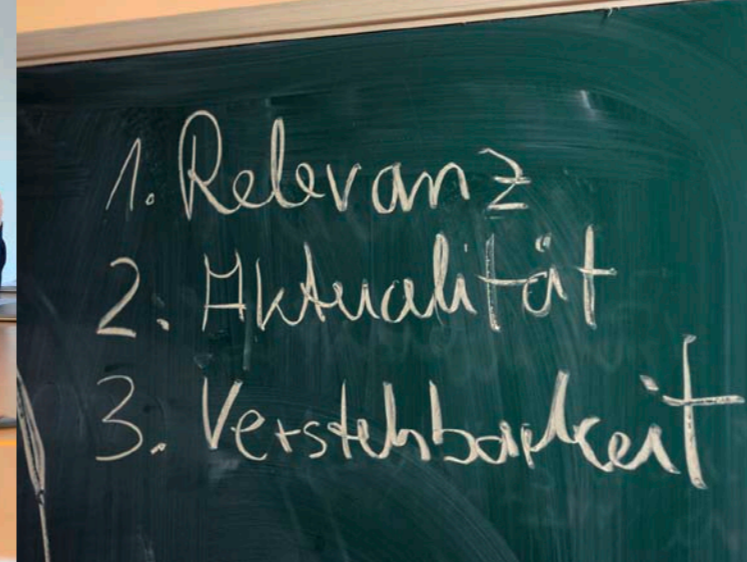 1. Relevanz
2. Aktualität
3. Verstehbarkeit